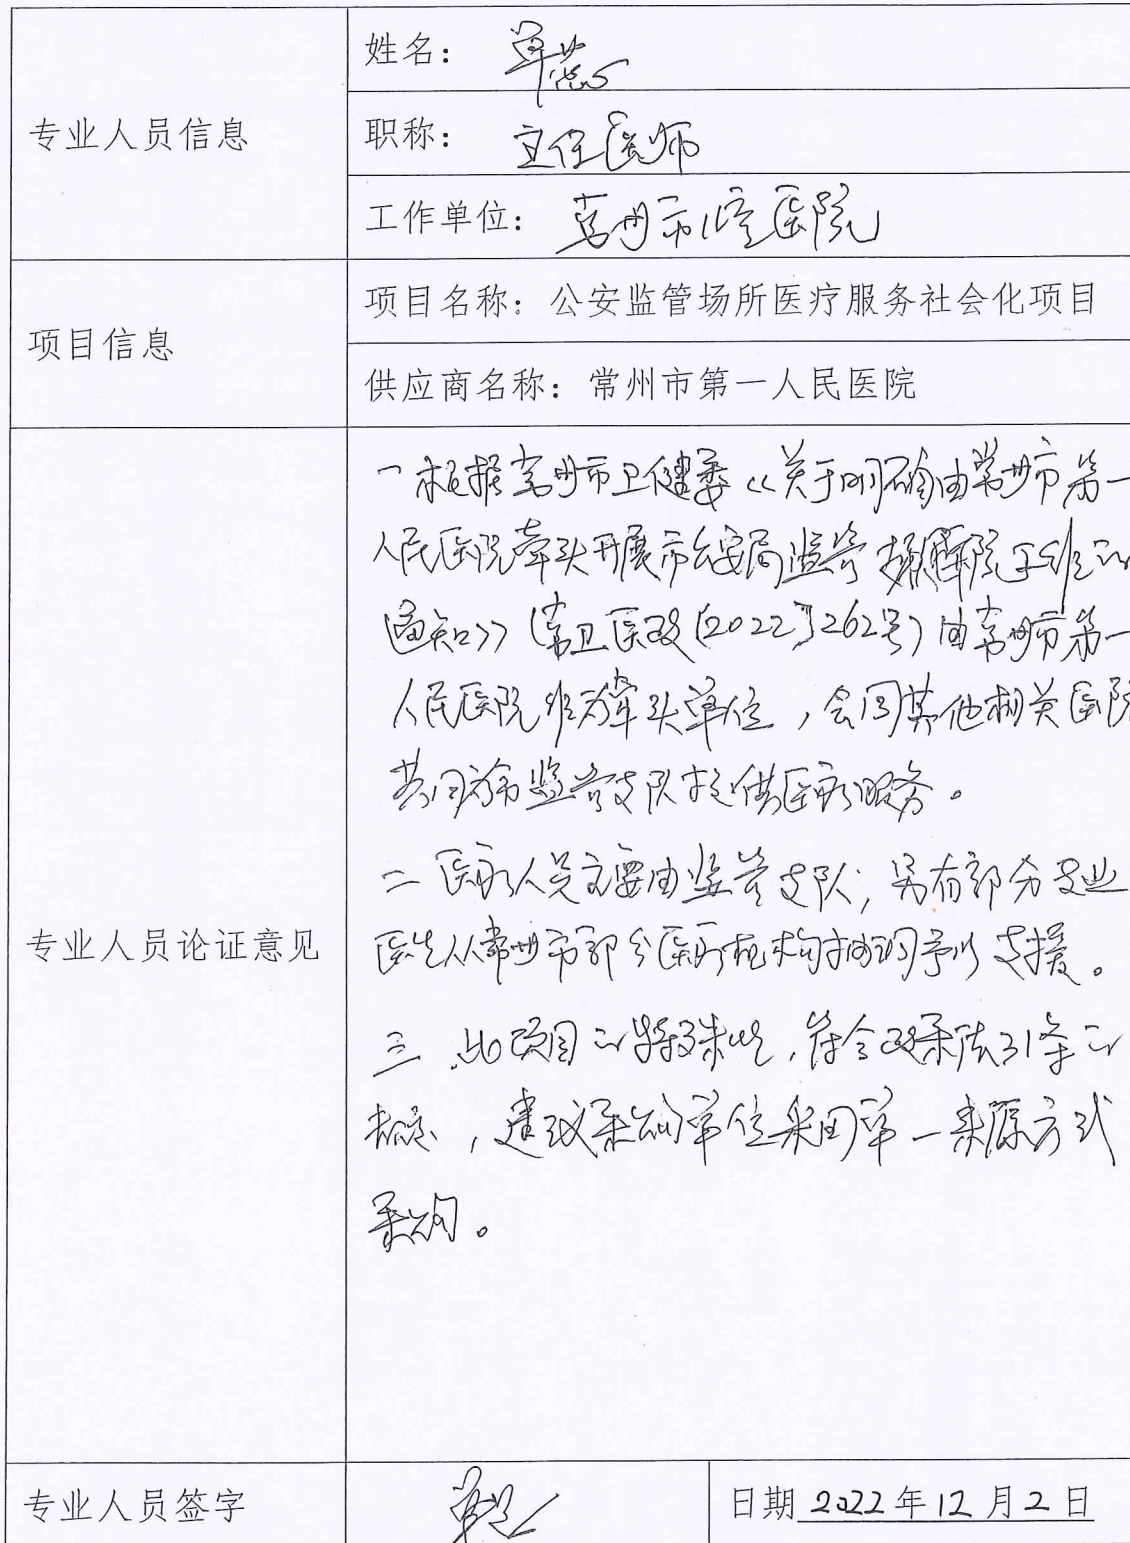 专业人员信息
姓名：
职称：主任医师
工作单位：常州市 医院
项目信息
项目名称：公安监管场所医疗服务社会化项目
供应商名称：常州市第一人民医院
专业人员论证意见
一根据常州市卫健委《关于明确由常州市第一
人民医院牵头开展市公安局监管 医院工作的
通知》（常卫医政〔2022〕262号）由常州市第一
人民医院作为牵头单位，会同其他相关医院
共同为监管支队提供医疗服务。
二医疗人员主要由监管支队；另有部分专业
医生从常州市部分医疗机构抽调予以支援。
三、此项目的特殊性，符合政采法31条的
，建议采购单位采用单一来源方式
采购。
专业人员签字
日期 2022年12月2日